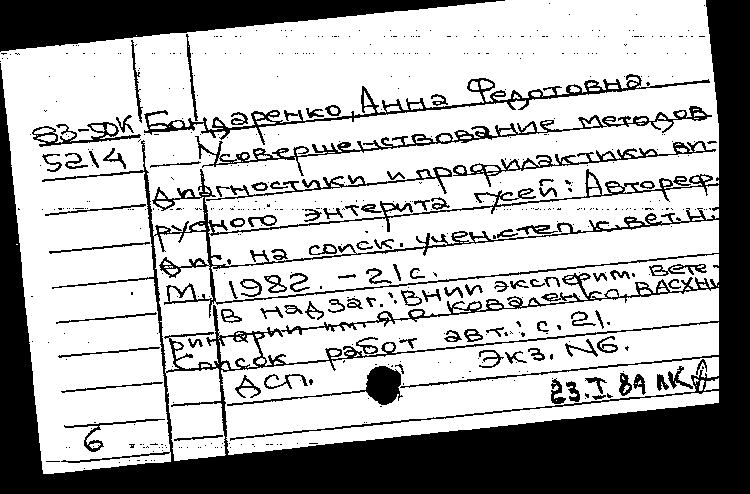 83-50К Бондаренко, Анна Федотовна.
5214 Усовершенствование методов
диагностики и профилактики ви-
русного энтерита гусей: Автореф.
дис. на соиск. учен. степ. к. вет. н.
М., 1982. - 21 с.
В надзаг.: ВНИИ эксперим. вете-
ринарии им. Я. Р. Коваленко, ВАСХНИ
Список работ авт.: с. 21.
ДСП. Экз. N6.
23.I.84
6